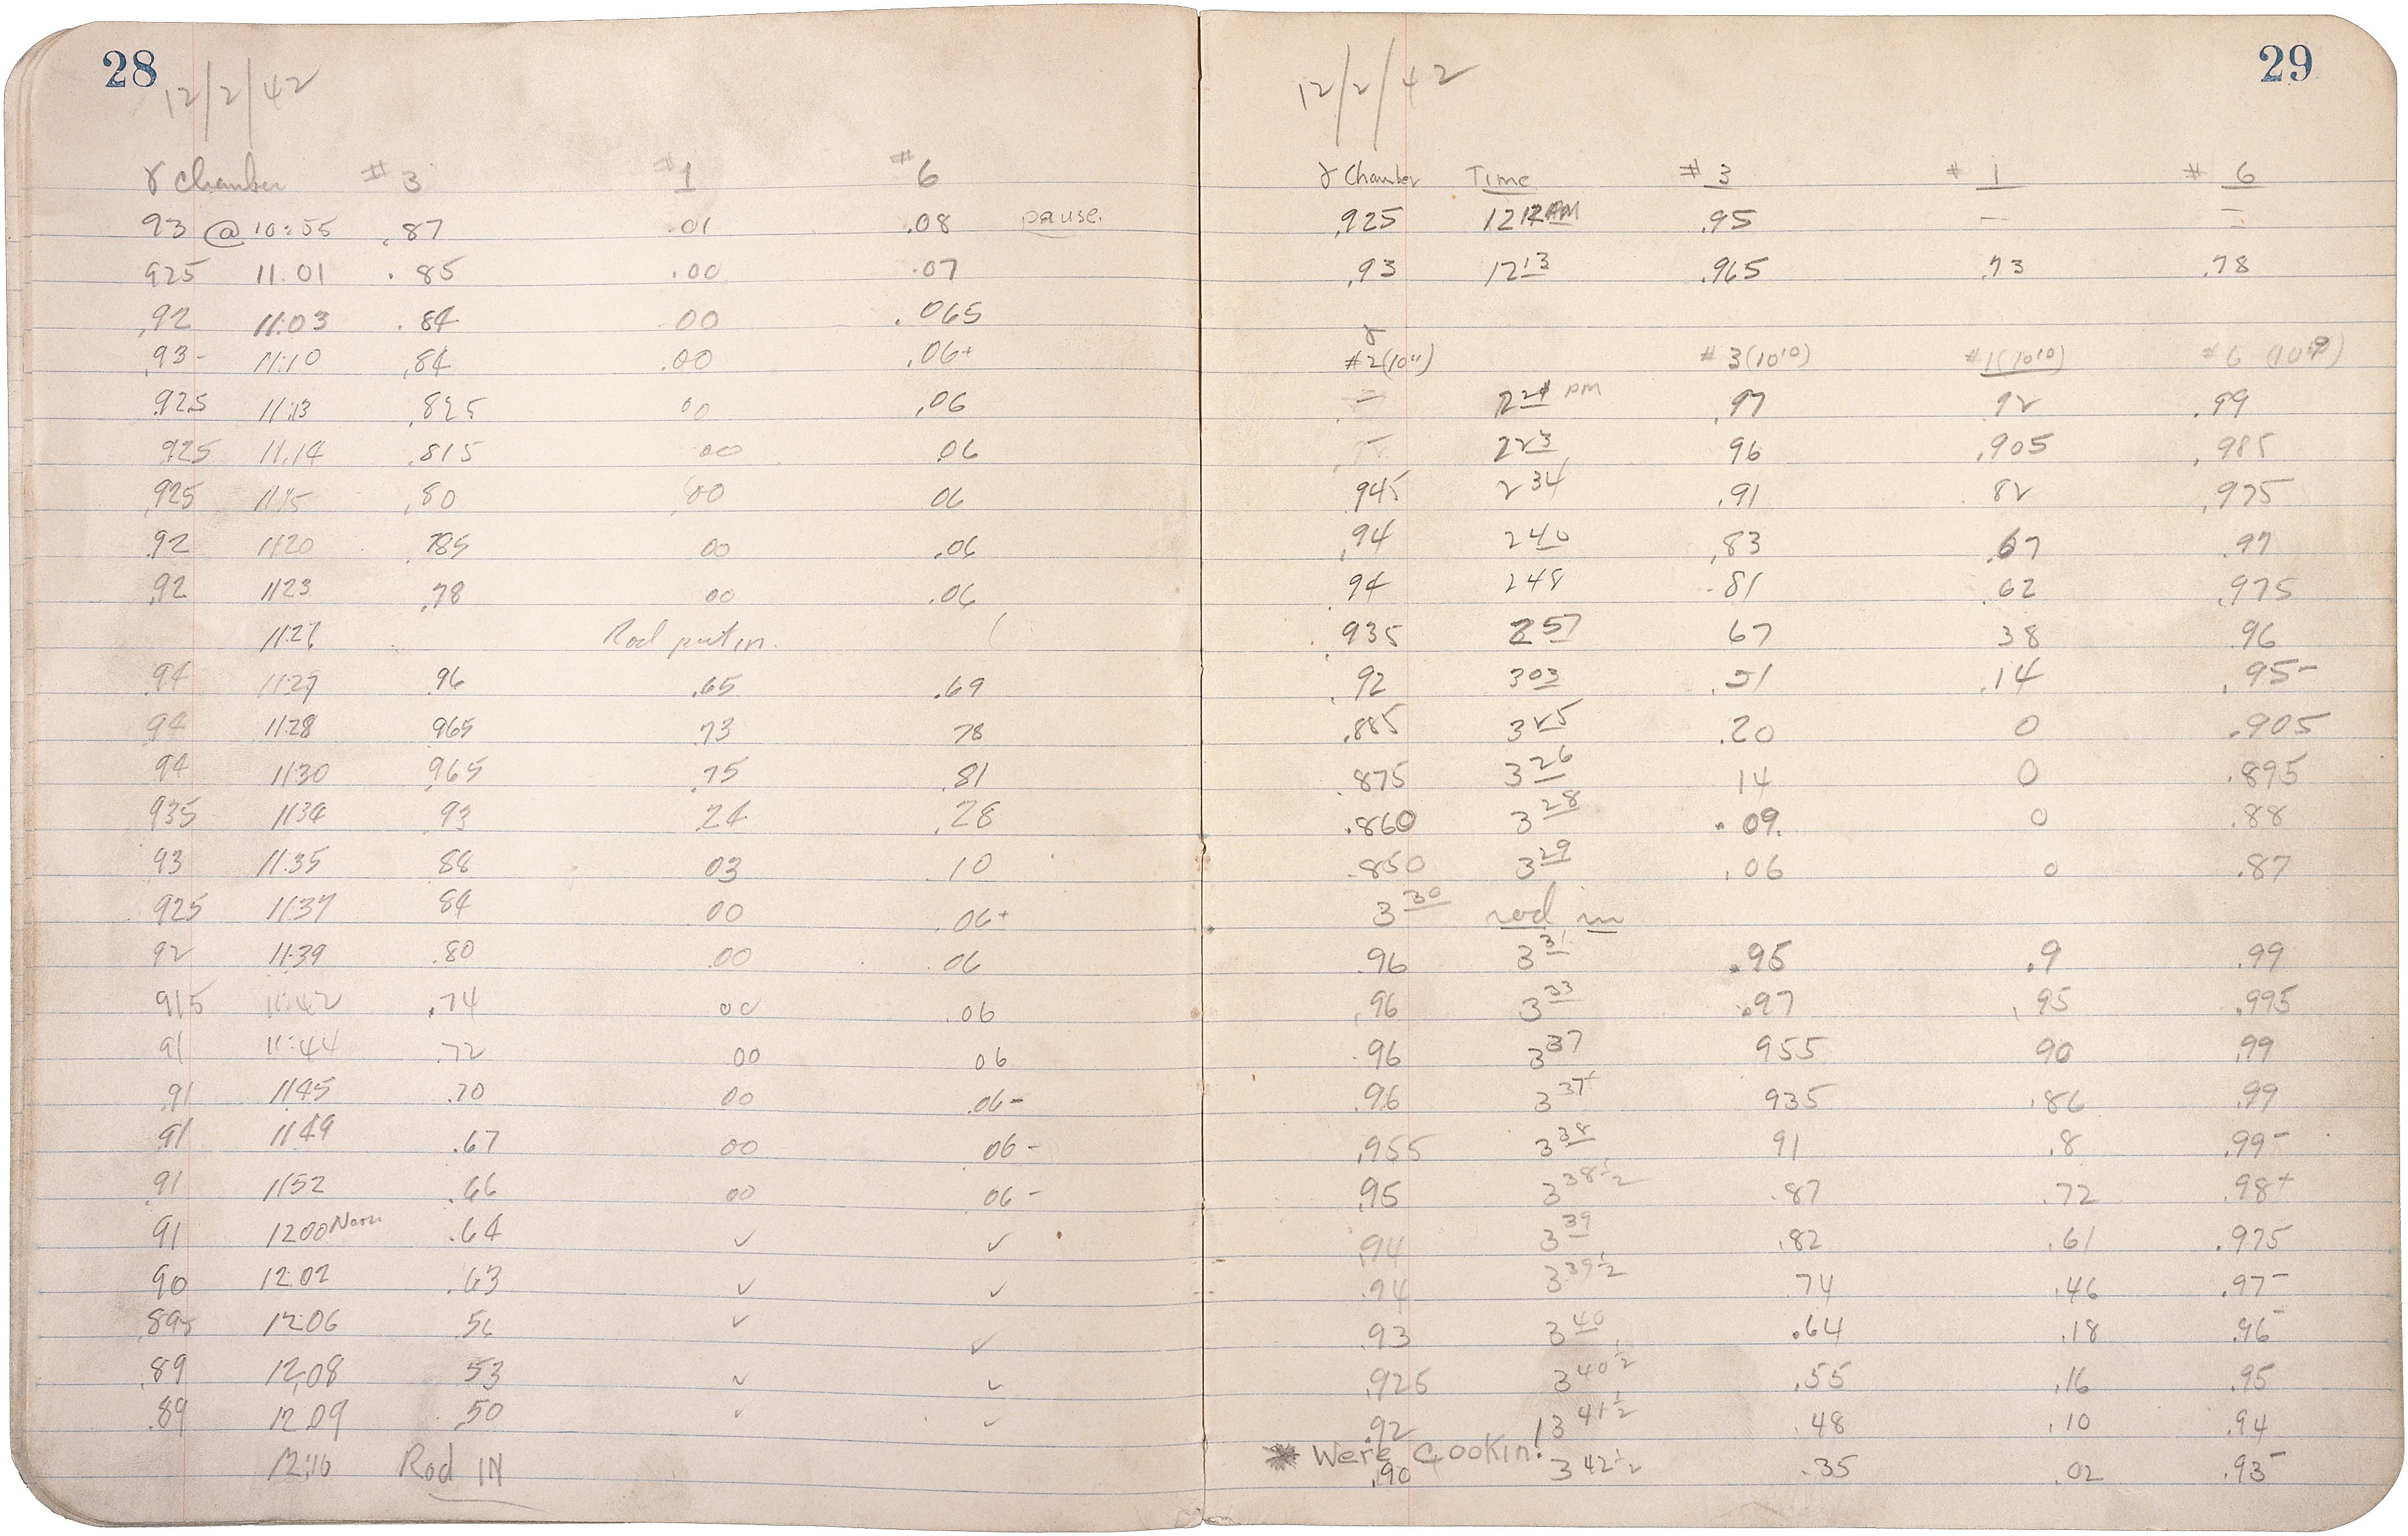 28
12/2/42
γ Chamber #3 #1 #6
93 @ 10:55 .87 .01 .08 pause.
925 11.01 .85 .00 .07
.92 11:03 .84 00 .065
.93- 11:10 .84 .00 .06+
.925 11:13 .825 00 .06
.925 11.14 .815 00 .06
.925 11:15 .80 00 06
.92 1120 .785 00 .06
.92 1123 .78 00 .06
Rod put in.
.94 .96 .65 .69
94 1128 965 .73 78
94 1130 .965 .75 .81
935 1134 .93 24 .28
.93 11.35 88 03 .10
.925 1137 84 00 .06+
92 11:39 .80 .00 06
915 11:42 .74 00 .06
91 11:44 .72 00 06
.91 1145 .70 00 .06-
.91 1149 .67 00 06-
.91 1152 .66 00 06-
91 1200 Noon .64 ✓ ✓
90 12.02 .63 ✓ ✓
.895 12:06 56 ✓ ✓
.89 12,08 53 ✓ ✓
.89 12.09 .50 ✓ ✓
12:10 Rod IN
29
12/2/42
γ Chamber Time #3 #1 #6
.925 12 12 AM .95 — —
.93 12 13 .965 .73 .78
γ
#2(10¹¹) #3(10¹⁰) #1(10¹⁰) #6
PM .97 92 .99
2 23 96 .905 .985
.945 2 34 .91 82 .975
.94 2 40 .83 .67 .97
.94 2 48 .81 .62 .975
.935 2 57 67 38 96
.92 3 03 .51 .14 .95-
.885 3 25 .20 0 .905
.875 3 26 14 0 .895
.860 3 28 .09. 0 .88
.850 3 29 .06 0 .87
3 30 rod in
96 3 31 .95 .9 .99
.96 3 33 .97 .95 .995
.96 3 37 955 90 .99
.96 3 37+ 935 .86 .99
.955 3 38 91 .8 .99-
.95 3 38½ .87 .72 .98+
.94 3 39 .82 .61 .975
.94 3 39½ 74 .46 .97-
.93 3 40 .64 .18 .96-
.925 3 40½ .55 .16 .95
.92 3 41½ .48 .10 .94
* Were Cookin!
.90 3 42½ .35 .02 .93-